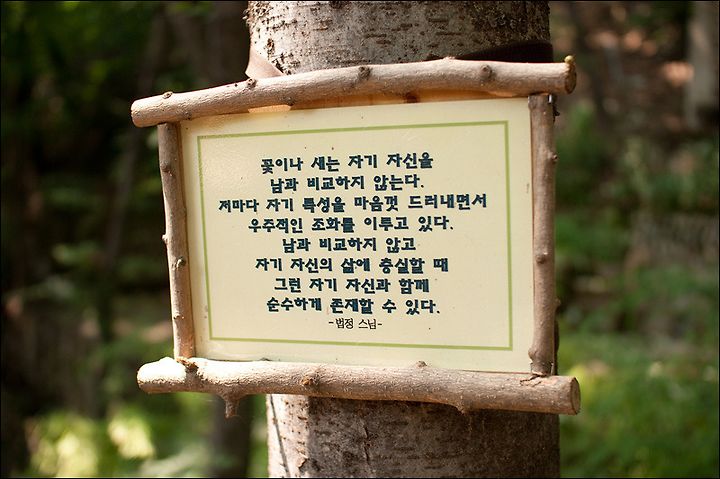 꽃이나 새는 자기 자신을
남과 비교하지 않는다.
저마다 자기 특성을 마음껏 드러내면서
우주적인 조화를 이루고 있다.
남과 비교하지 않고
자기 자신의 삶에 충실할 때
그런 자기 자신과 함께
순수하게 존재할 수 있다.
-법정 스님-